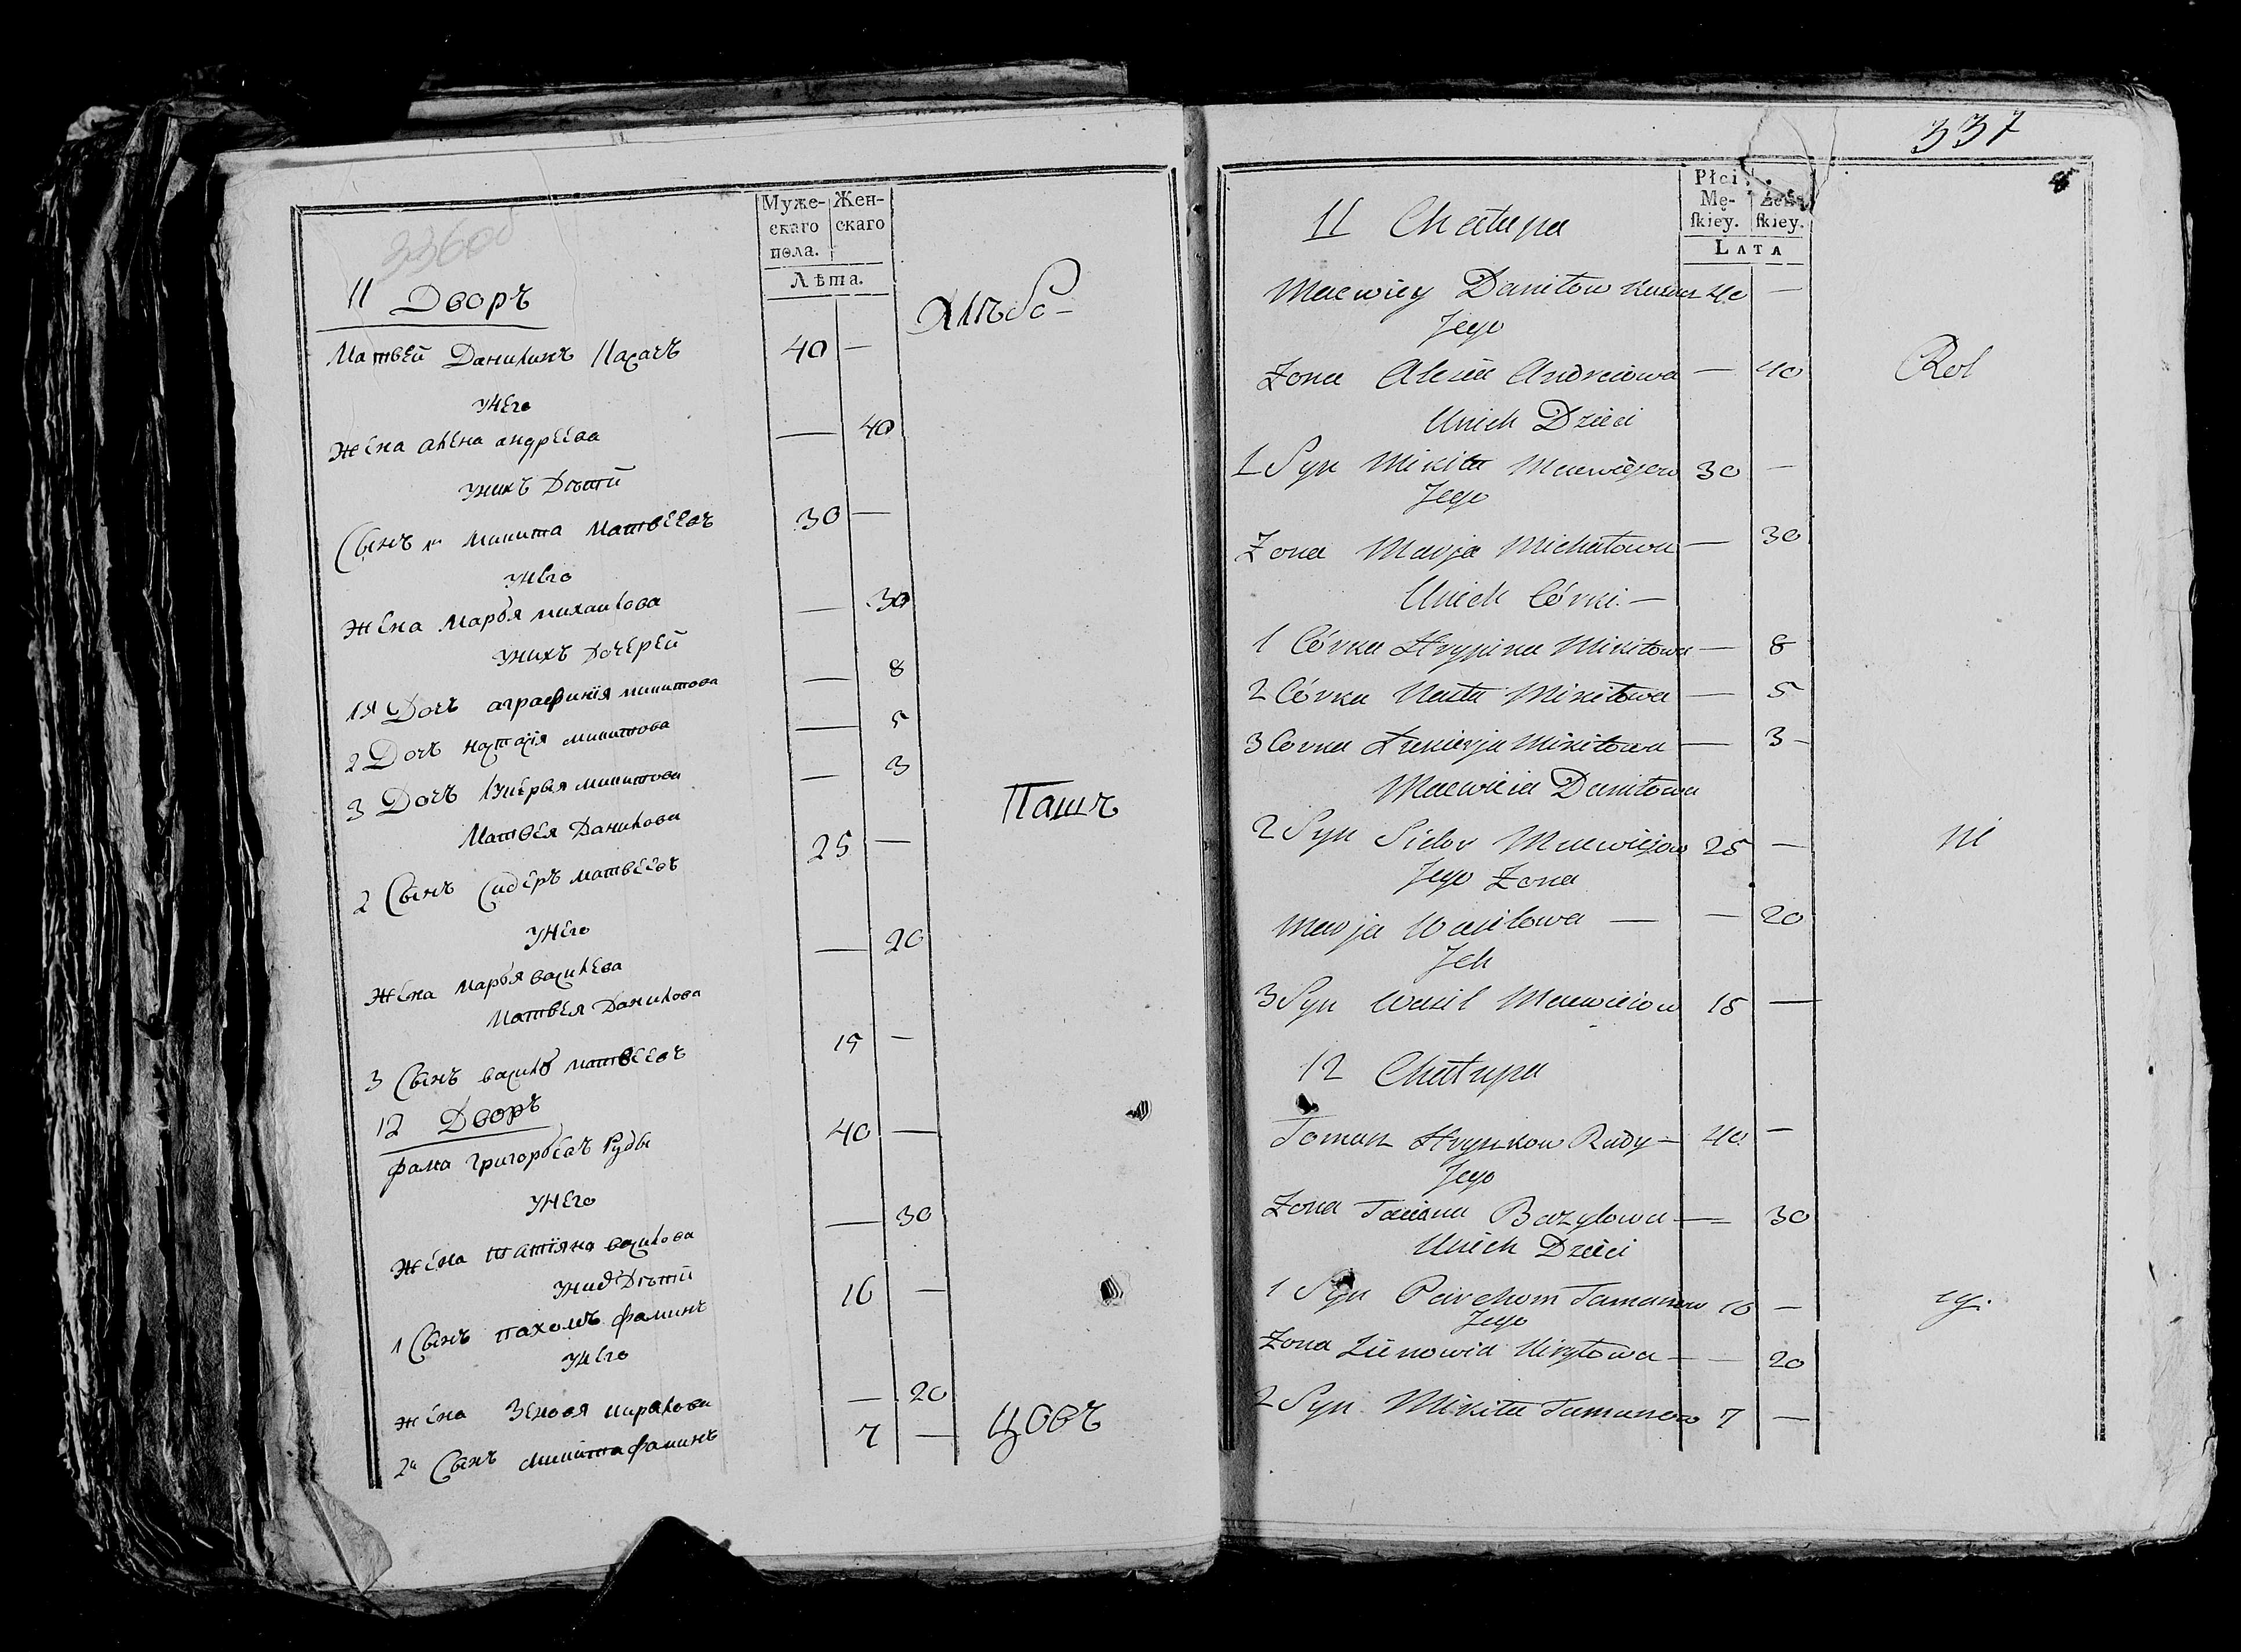 336об
Муже-
скаго
пола.
Жен-
скаго
Лѣта.
11 Дворъ
Матвей Данилинъ 40 —
унего
жена алена андреева — 40
унихъ Дѣти
Сынъ 1й микита Матвеевъ 30 —
унего
жена Марья михаилова — 30
унихъ Дочерей
1я Дочъ аграфинія микитова — 8
2 Дочъ микитова — 5
3 Дочъ микитова — 3
Матвея Данилова
2 Сынъ Сидеръ матвеевъ 25 —
унего
жена Марья васильева — 20
Матвея Данилова
3 Сынъ василь матвеевъ 15 —
12 Дворъ
фама григорьевъ Руды 40 —
унего
жена татіяна василова — 30
Дѣти
1 Сынъ пахомъ фаминъ 16 —
унего
жена Зеновя кирилова — 20
2й Сынъ микита фаминъ 7 —
хлѣбо-
Паш
цовъ
337
Płci
Mę-
ſkiey.
Żeńſ
ſkiey.
LATA
11 Chałupa
Maewiey Daniłow 40 —
Jego
Żona Alena Andreiowa — 40
Unich Dzieci
1 Syn Mikita Maewiejow 30 —
Jego
Żona Marja Michałowa — 30
Unich Córki —
1 Córka Hrypina Mikitowa — 8
2 Córka Nasta Mikitowa — 5
3 Corka Łukierja Mikitowa — 3 -
Maewieia Daniłowa
2 Syn Sidor Maewiejow 25 —
Jego Żona
Marja Wasilowa — — 20
Jch
3 Syn Wasil Maewieiow 15 —
12 Chałupa
Tomasz Hryszkow Rudy — 40 —
Jego
Żona Taciana Bazylowa — 30
Unich Dzieci
1 Syn Parchom Tamaszow 16 —
Jego
Żona Zienowia Kiryłowa — — 20
2 Syn Mikita Tamaszow 7 —
Rol
ni
cy.